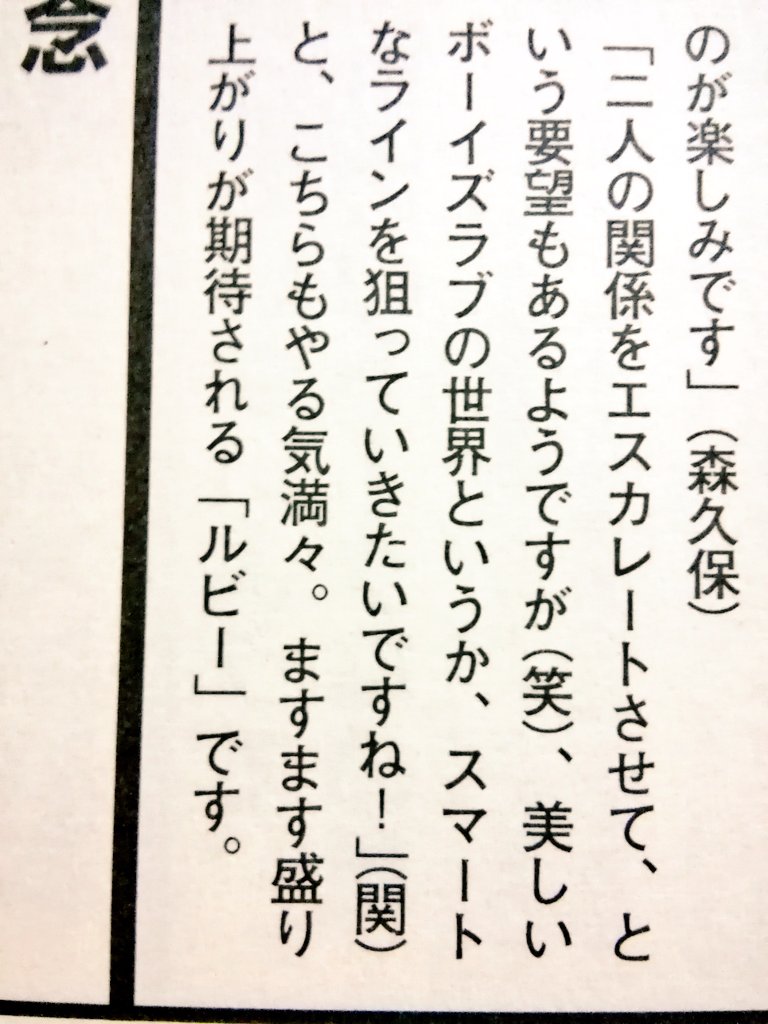 のが楽しみです」(森久保)
「二人の関係をエスカレートさせて、と
いう要望もあるようですが(笑)、美しい
ボーイズラブの世界というか、スマート
なラインを狙っていきたいですね!」(関)
と、こちらもやる気満々。ますます盛り
上がりが期待される「ルビー」です。
念